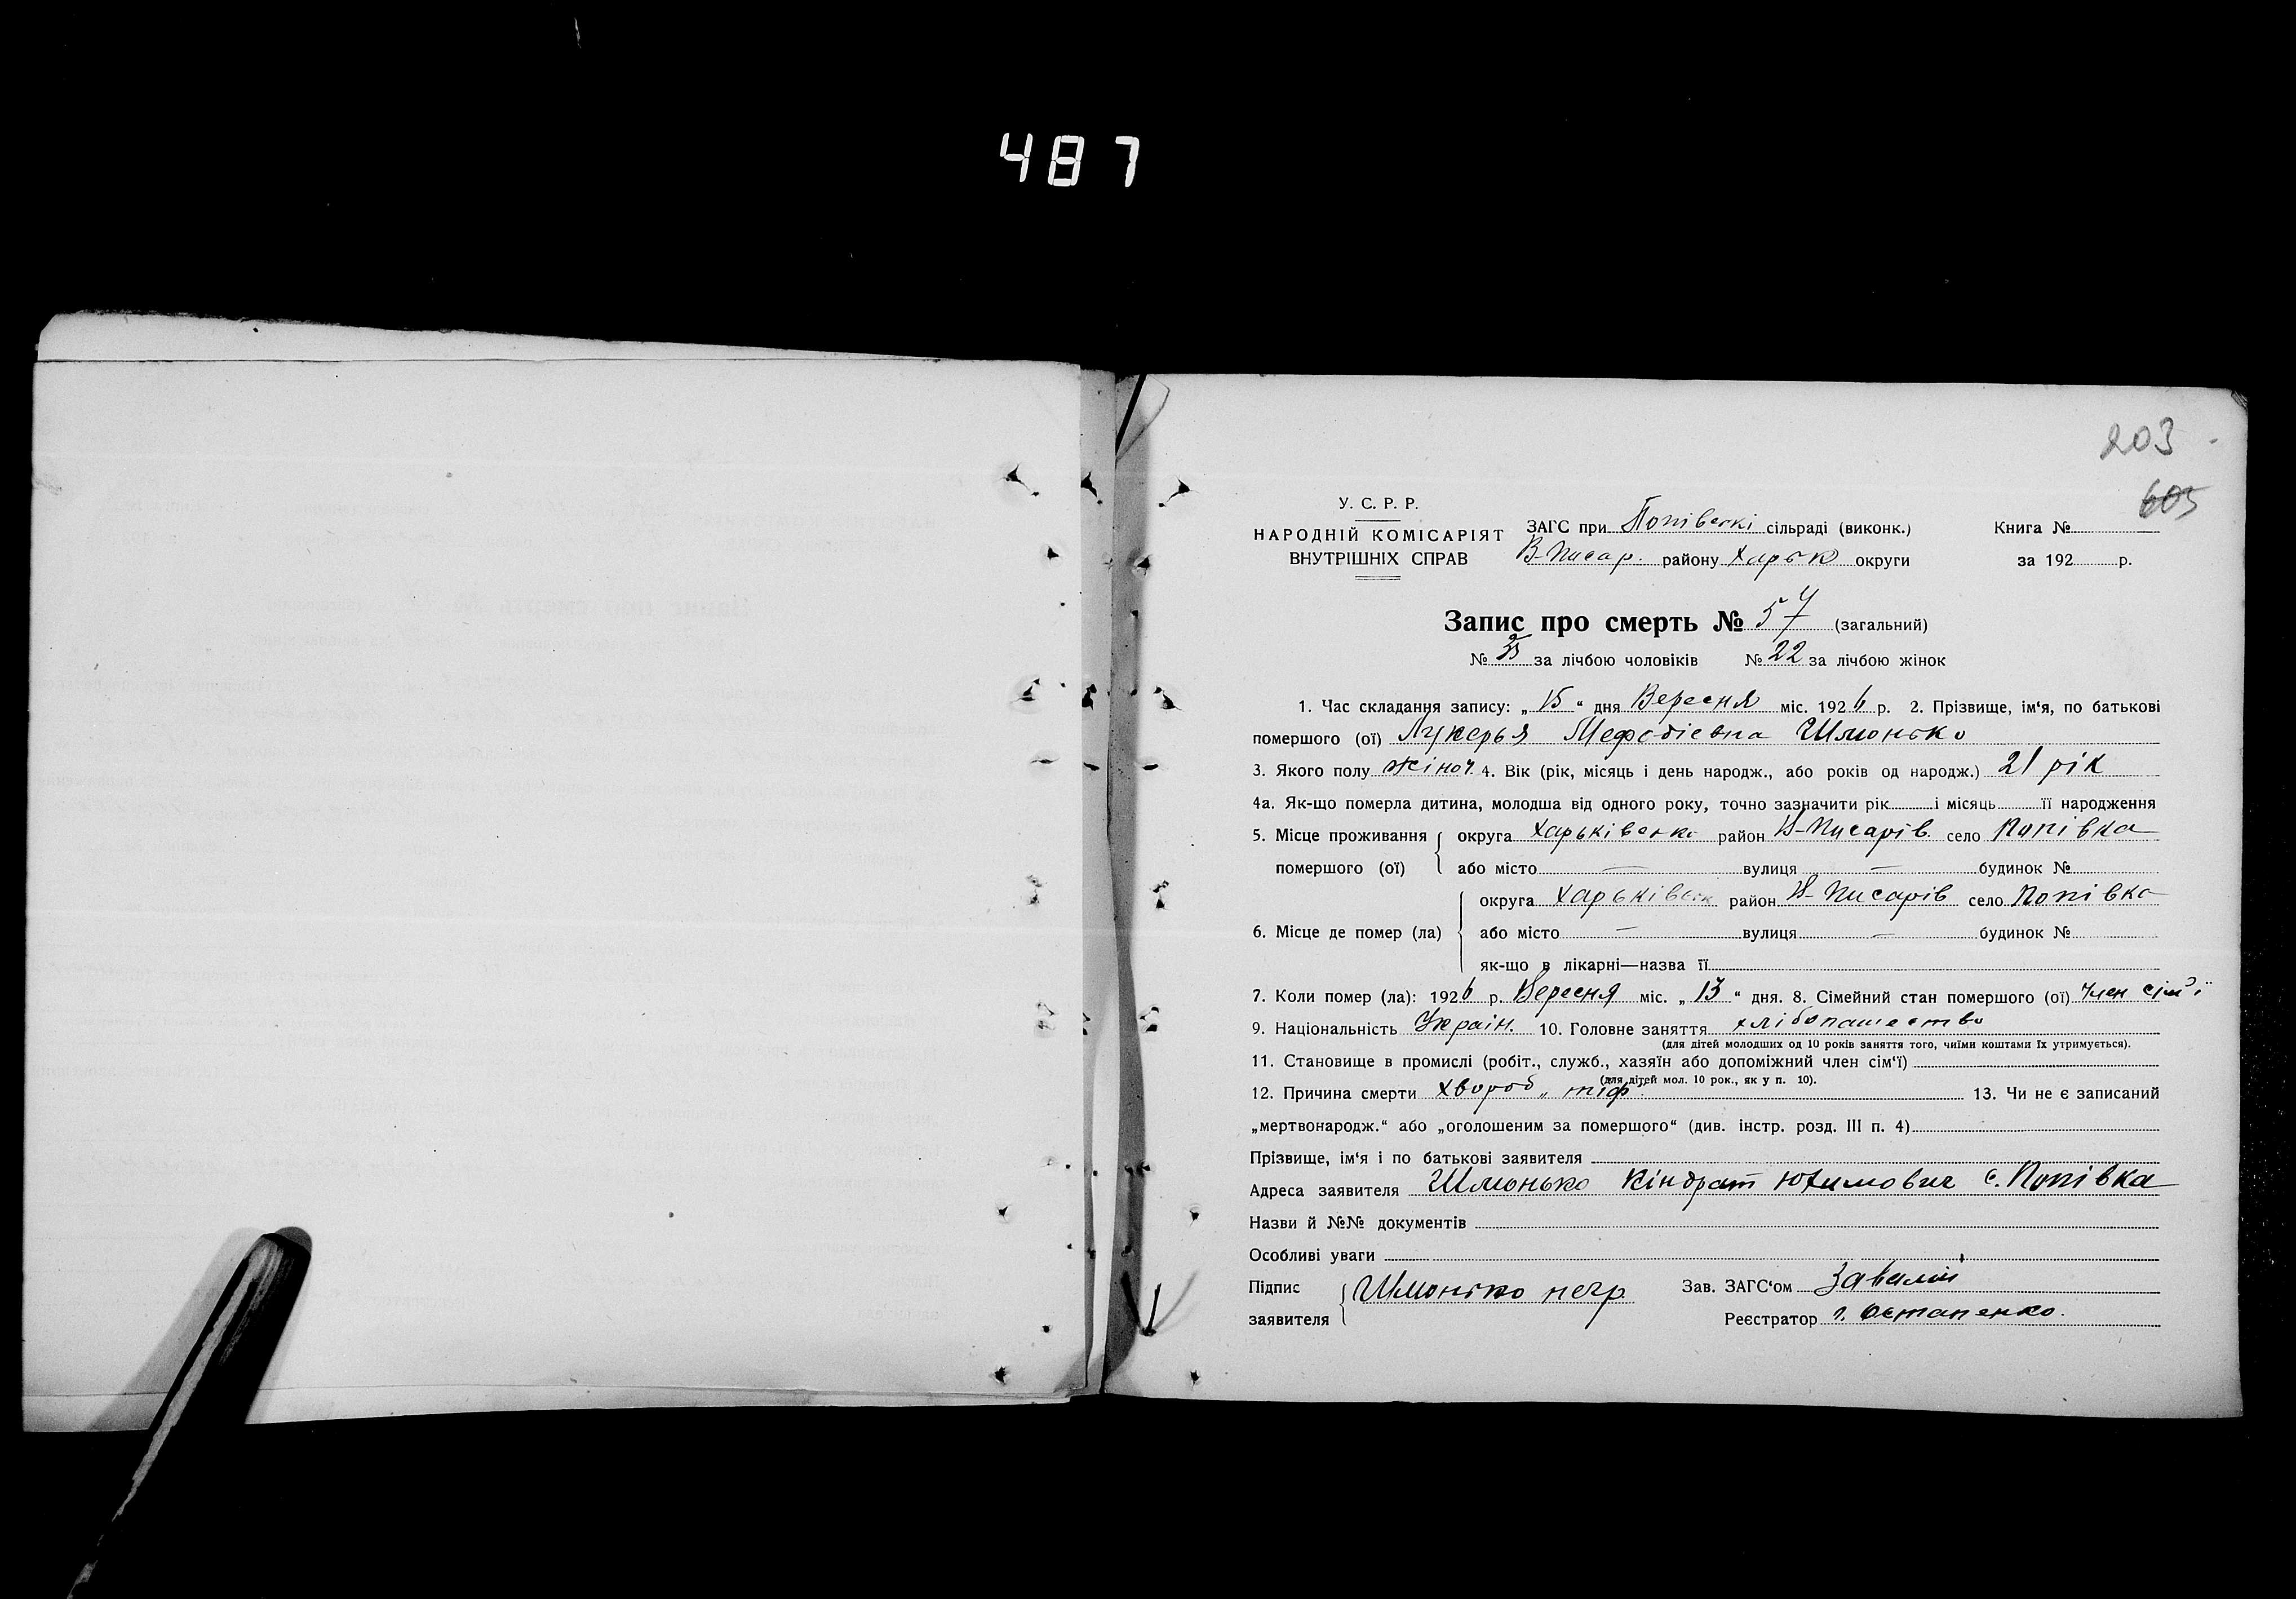 487
203
605
У. С. Р. Р.
НАРОДНІЙ КОМІСАРІЯТ
ВНУТРІШНІХ СПРАВ
ЗАГС при Попівскі сільраді (виконк.)
В-Писар. району Харьк округи
Книга №
за 192 р.
Запис про смерть № 57 (загальний)
№ за лічбою чоловіків № 22 за лічбою жінок
1. Час складання запису: „15“ дня Вересня міс. 1926 р. 2. Прізвище, ім‘я, по батькові
помершого (ої) Лукерья Мефодіевна Шмонько
3. Якого полу жіноч. 4. Вік (рік, місяць і день народж., або років од народж.) 21 рік
4а. Як-що померла дитина, молодша від одного року, точно зазначити рік і місяць її народження
5. Місце проживання помершого (ої) округа Харьківско район В-Писарів. село Попівка
або місто — вулиця — будинок №
6. Місце де помер (ла) округа Харьківськ район В-Писарів село Попівка
або місто — вулиця — будинок №
як-що в лікарні—назва її
7. Коли помер (ла): 1926 р. Вересня міс. „13“ дня. 8. Сімейний стан помершого (ої) член сім'ї
9. Національність Украін. 10. Головне заняття хлібопашество
(для дітей молодших од 10 років заняття того, чиїми коштами їх утримується).
11. Становище в промислі (робіт., служб., хазяїн або допоміжний член сім‘ї)
(для дітей мол. 10 рок., як у п. 10).
12. Причина смерти хвороб „тіф“ 13. Чи не є записаний
„мертвонародж.“ або „оголошеним за помершого“ (див. інстр. розд. III п. 4)
Прізвище, ім‘я і по батькові заявителя
Адреса заявителя Шмонько Кіндрат Юхимович с. Попівка
Назви й №№ документів
Особливі уваги
Підпис заявителя Шмонько негр
Зав. ЗАГС‘ом
Реєстратор Остапенко.